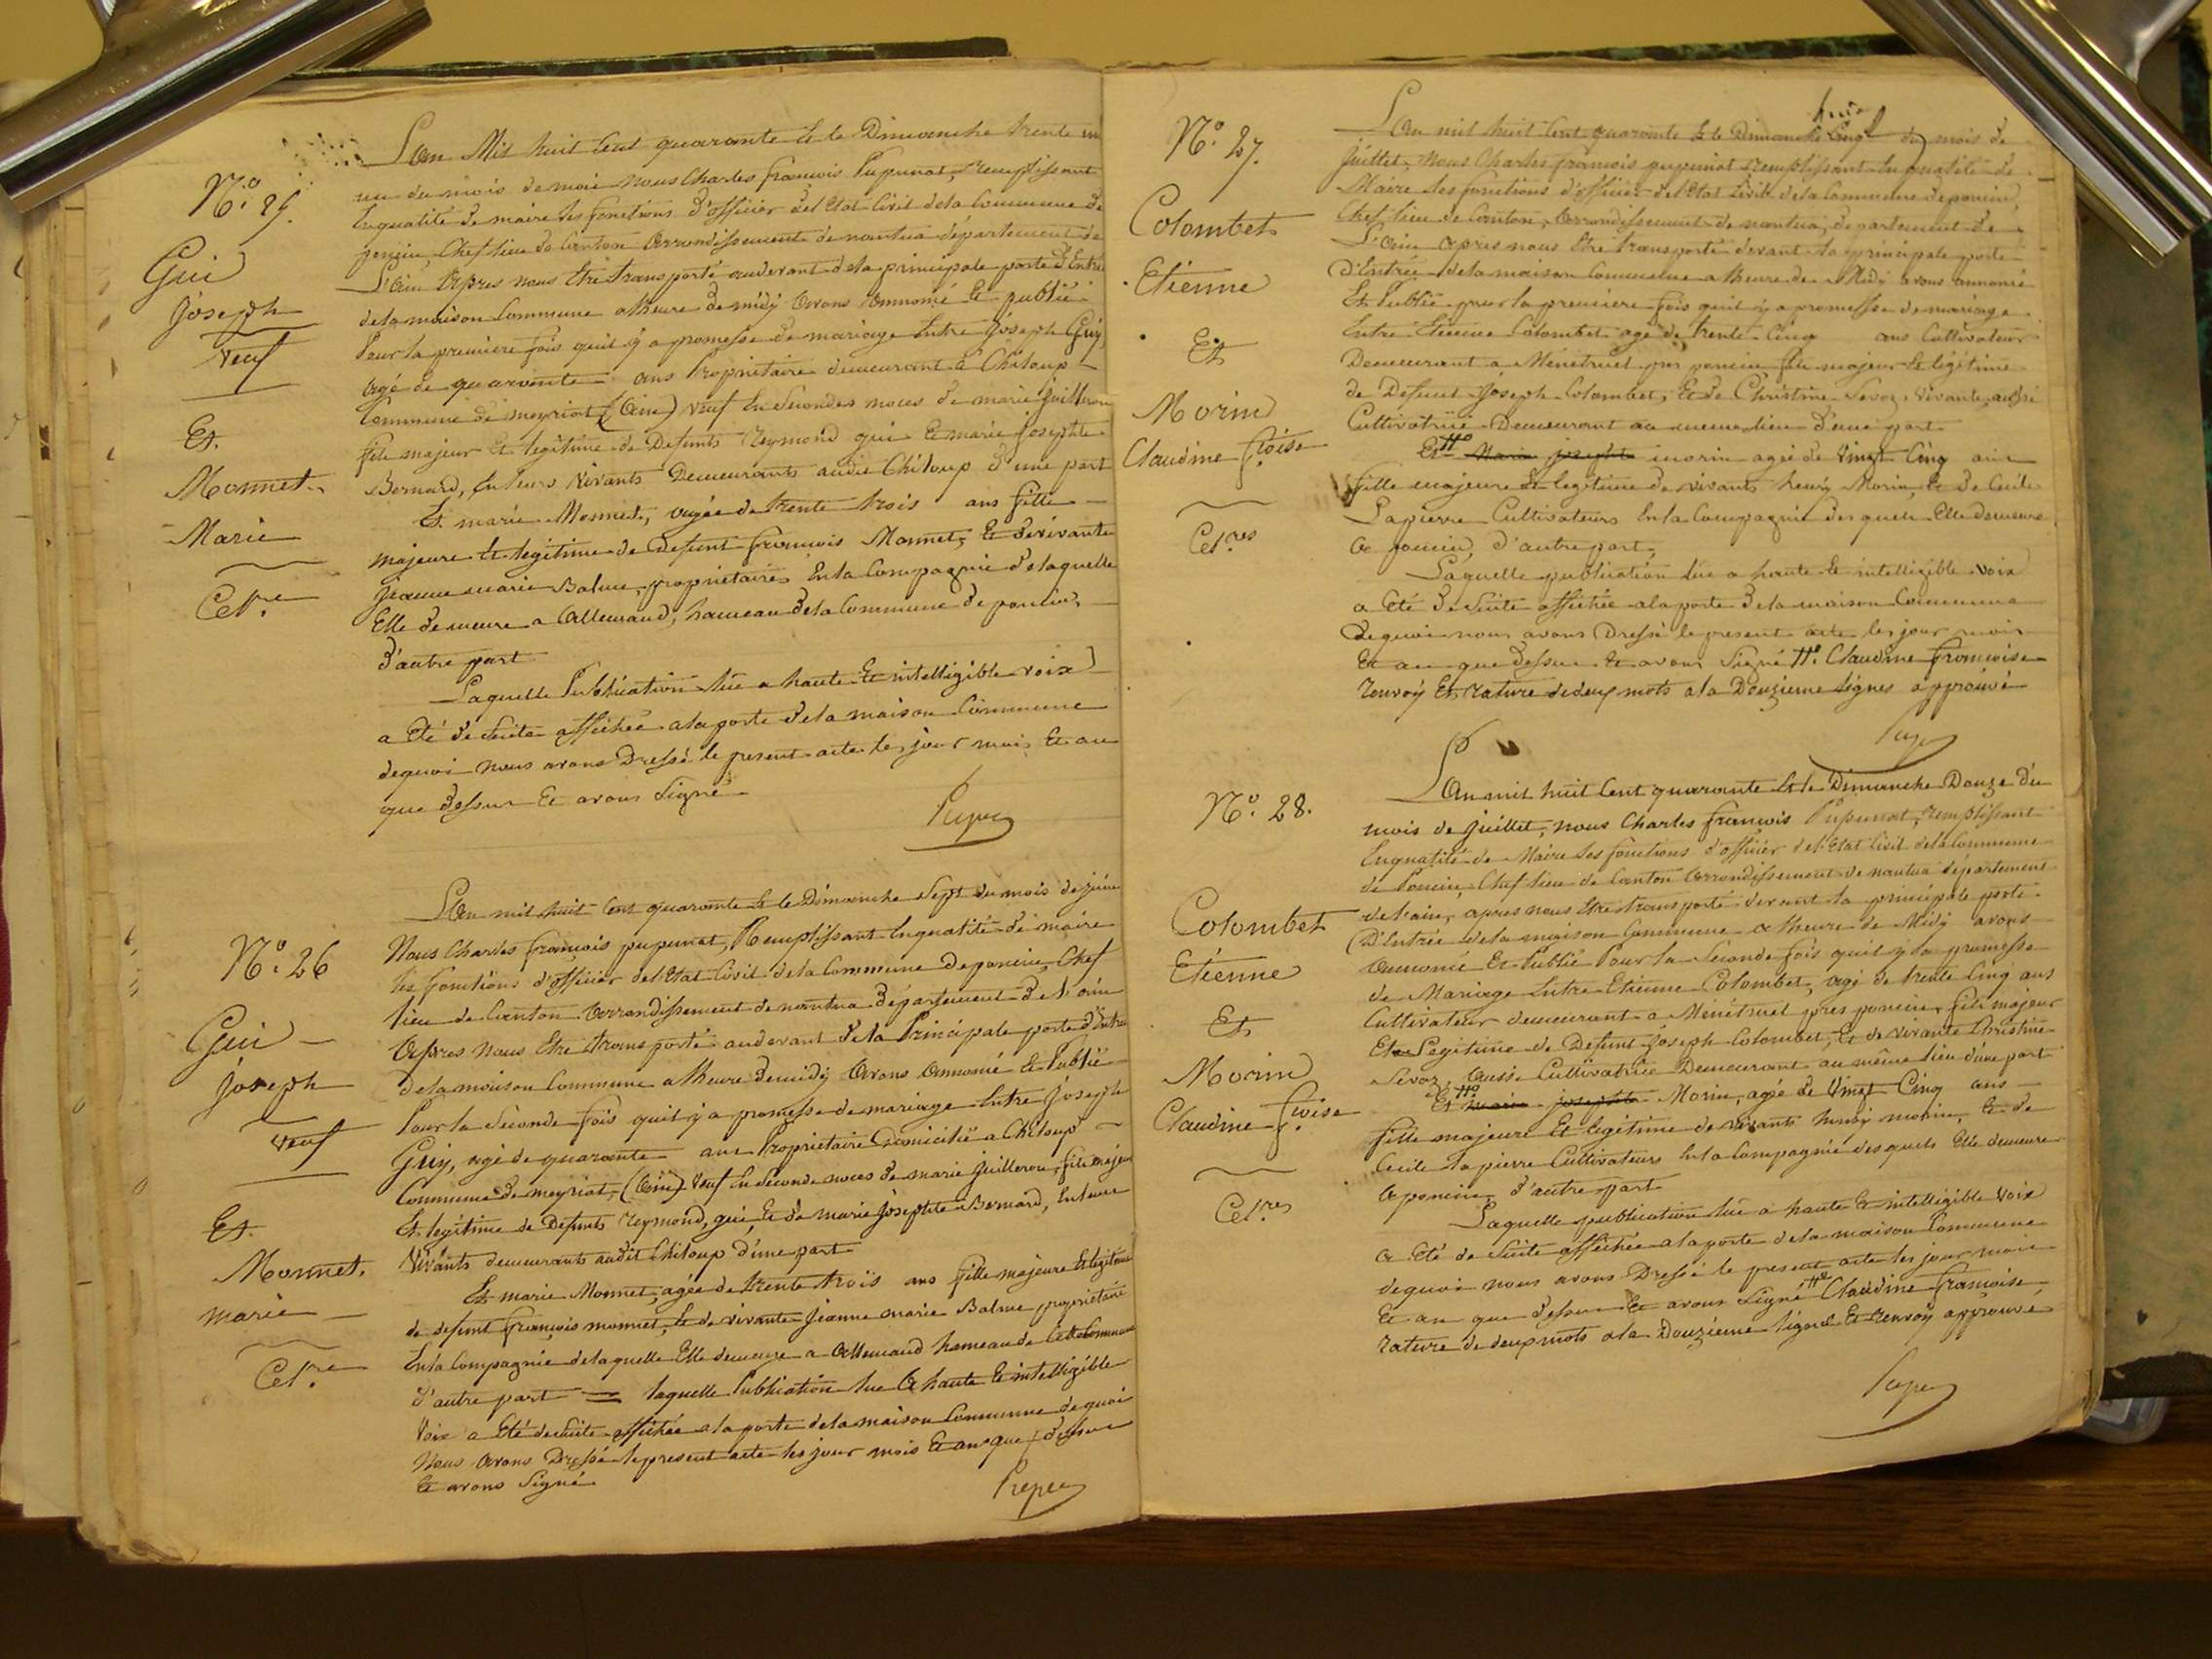 N.° 25.
Gui
Joseph
Veuf
Et.
Monnet
Marie
Cel.re
L'an Mil huit Cent quarante Et le Dimanche trente un
du mois de mai nous Charles françois Pupunat, remplissant
En qualité de maire les fonctions d'officier de l'Etat Civil de la Commune de
poncin, Chef lieu de Canton Arrondissement de nantua département de
L'ain Apres nous Etre transporté audevant de la principale porte d'Entrée
de la maison Commune a l'heure de midy Avons Annoncé Et publié
Pour la premiere fois quil y a promesse de mariage Entre Joseph Guy,
agé de quarante ans Propriétaire demeurant à Chiloup
Commune de meyriat (Ain) Veuf En Secondes noces de marie Juilleron
fils majeur Et legitime de Defunts Reymond gui Et marie Josephte
Bernard, En leurs Vivants Demeurants audit Chiloup d'une part
Et marie Monnet, agée de trente trois ans fille
majeure Et legitime de Defunt françois Monnet, Et de vivante
Jeanne marie Balme, propriétaires En la Compagnie de laquelle
Elle demeure a Allemand, hameau de la Commune de poncin,
d'autre part
Laquelle Publication lue a haute Et intelligible voix
a Eté de Suite affichée a la porte de la maison Commune
de quoi nous avons Dressé le present acte les jour mois Et an
que dessus Et avons Signé
N.° 26
Gui
Joseph
Veuf
Et.
Monnet.
marie
Cel.re
L'an mil huit Cent quarante Et le Dimanche Sept du mois de juin
Nous Charles françois pupunat, Remplissant En qualité de maire
les fonctions d'officier de l'Etat Civil de la Commune de poncin, Chef
lieu de Canton Arrondissement de nantua département de l'ain
Apres nous Etre transporté audevant de la Principale porte d'Entrée
de la maison Commune a l'heure de midy Avons Annoncé Et Publié
Pour la Seconde fois quil y a promesse de mariage Entre Joseph
Guy, agé de quarante ans Propriétaire Domicilié a Chiloup
Commune de meyriat, (Ain) Veuf En Seconde noces de marie Juilleron, fils majeur
Et legitime de Defunts Reymond, gui, Et de marie Josephte Bernard, En leurs
Vivants demeurants audit Chiloup d'une part
Et marie Monnet, agée de trente trois ans fille majeure Et legitime
de defunt françois monnet, Et de vivante Jeanne marie Balme propriétaire
En la Compagnie de laquelle Elle demeure a Allemand hameau de Cette Commune
d'autre part = laquelle Publication lue A haute Et intelligible
Voix a Eté de Suite affichée a la porte de la maison Commune de quoi
Nous Avons Dressé le present acte les jour mois Et an que dessus
Et avons Signé
N.° 27.
Colombet
Etienne
Et
Morin
Claudine f.çoise
Cel.res
L'an mil huit Cent quarante Et le Dimanche Cinq du mois de
Juillet, Nous Charles francois pupunat Remplissant En qualité de
Maire les fonctions d'officier de l'Etat Civil de la Commune de poncin,
Chef lieu de Canton, Arrondissement de nantua, departement de
L'Ain Apres nous Etre transporté devant la principale porte
d'Entrée de la maison Commune a l'heure de Midy avons annoncé
Et Publié pour la premiere fois quil y a promesse de mariage
Entre Etienne Colombet agé de trente Cinq ans Cultivateur
Demeurant a Ménétruel pres poncin fils majeur Et légitime
de Defunt Joseph Colombet, Et de Christine Sevoz, Vivante, aussi
Cultivatrice Demeurant au meme lieu d'une part
Et Marie josephte morin agée de Vingt Cinq ans
fille majeure Et legitime de vivants henry Morin, Et de Cecile
Lapierre Cultivateurs En la Compagnie des quels Elle demeure
A poncin, d'autre part,
Laquelle publication lue a haute Et intelligible voix
a Eté de Suite affichée a la porte de la maison Commune
de quoi nous avons Dressé le present acte les jour mois
Et an que dessus Et avons Signé Claudine francoise
renvoy Et, rature de deux mots a la Douzieme lignes approuvé
N.° 28.
Colombet
Etienne
Et
Morin
Claudine f.çoise
Cel.res
L'An mil huit Cent quarante Et le Dimanche Douze du
mois de Juillet, nous Charles francois Pupunat, remplissant
En qualité de Maire les fonctions d'officier de l'Etat Civil de la Commune
de Poncin, Chef lieu de Canton Arrondissement de nantua département
de l'ain, apres nous Etre transporté devant la principale porte
D'Entrée de la maison Commune a l'heure de Midy avons
Annoncé Et Publié Pour la Seconde fois quil y a promesse
de Mariage Entre Etienne Colombet, agé de trente Cinq ans
Cultivateur demeurant a Ménétruel près poncin, fils majeur
Et Legitime de Defunt Joseph Colombet, Et de vivante Christine
Sevoz, Aussi Cultivatrice Demeurant au même lieu d'une part
Et Marie josephte Morin, agée de Vingt Cinq ans
fille majeure Et legitime de vivants henry morin, Et de
Cecile Lapierre Cultivateurs En la Compagnie des quels Elle demeure
A poncin, d'autre part
Laquelle publication lue a haute Et intelligible voix
a Eté de Suite affichée a la porte de la maison Commune
de quoi nous avons Dressé le present acte les jour mois
Et an que dessus Et avons Signé Claudine francoise,
rature de deux mots a la Douzieme lignes Et renvoy approuvé